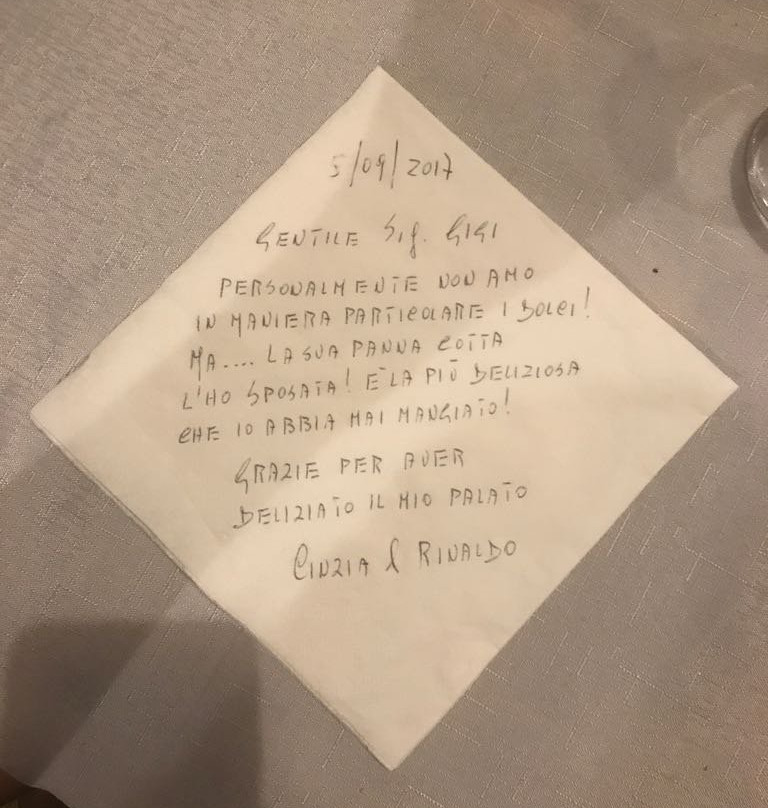 5/09/2017
GENTILE Sig. GIGI
PERSONALMENTE NON AMO
IN MANIERA PARTICOLARE I DOLCI!
MA.... LA SUA PANNA COTTA
L'HO SPOSATA! È LA PIÙ DELIZIOSA
CHE IO ABBIA MAI MANGIATO!
GRAZIE PER AVER
DELIZIATO IL MIO PALATO
CINZIA & RINALDO